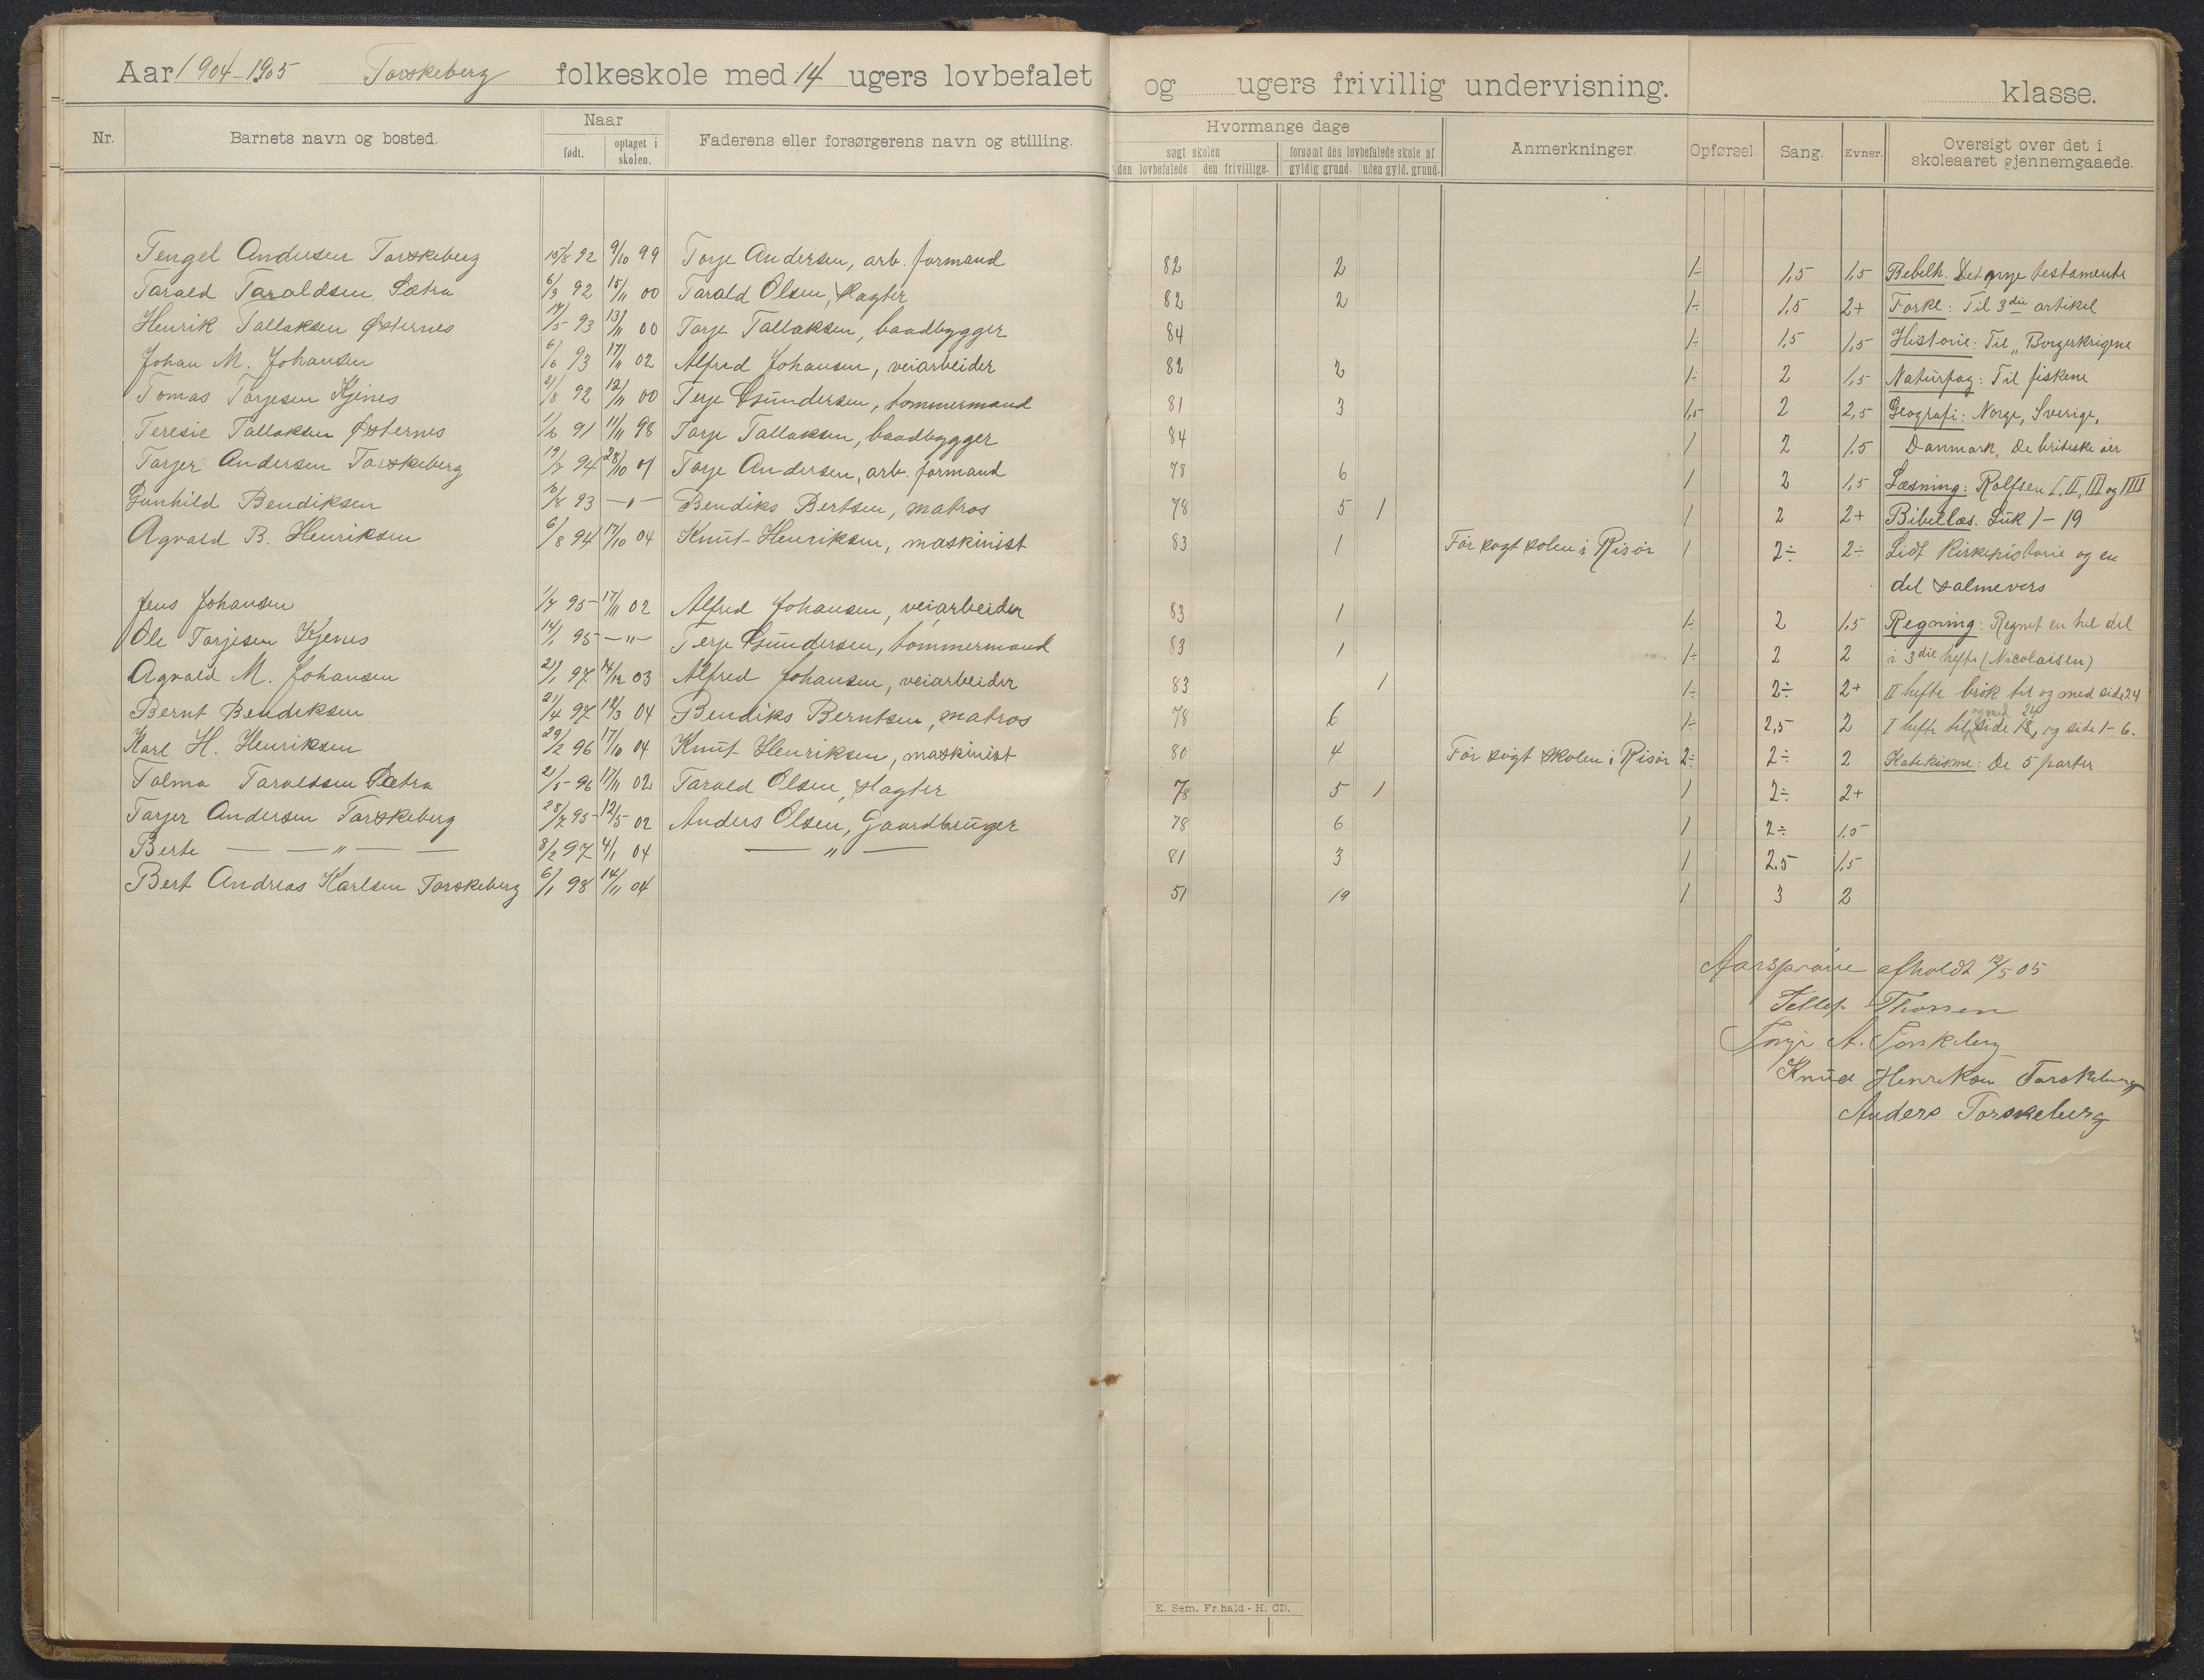 Aar 1904-1905 Torskeberg folkeskole med 14 ugers lovbefalet og ugers frivillig undervisning. klasse.
Nr. Barnets navn og bosted. Naar født. optaget i skolen. Faderens eller forsørgerens navn og stilling. Hvormange dage søgt skolen den lovbefalede. den frivillige. forsømt den lovbefalede skole af gyldig grund. uden gyld. grund. Anmerkninger. Opførsel. Sang. Evner. Oversigt over det i skoleaaret gjennemgaaede.
Tengel Andersen Torskeberg 15/8 92 9/10 99 Torje Andersen, arb. formand 82 2 1÷ 1,5 1,5 Bibelh. Det nye testamente
Tarald Taraldsen Sætra 6/9 92 15/11 00 Tarald Olsen, slagter 82 2 1÷ 1,5 2+ Forkl: Til 3die artikel
Henrik Tallaksen Østernes 17/5 93 13/11 00 Torje Tallaksen, baadbygger 84 1÷ 1,5 1,5 Historie: Til "Borgerkrigene
Johan M. Johansen 6/6 93 17/11 02 Alfred Johansen, veiarbeider 82 2 1÷ 2 1,5 Naturfag: Til fiskene
Tomas Torjesen Kjenes 2/8 92 12/11 00 Terje Gundersen, tommermand 81 3 1,5 2 2,5 Geografi: Norge, Sverige,
Teresie Tallaksen Østernes 1/2 91 11/11 98 Torje Tallaksen, baadbygger 84 1 2 1,5 Danmark, De britiske øer
Tarjer Andersen Torskeberg 19/2 94 28/10 01 Torje Andersen, arb. formand 78 6 1 2 1,5 Læsning: Rolfsen I, II, III og IIII
Gunhild Bendiksen 10/8 93 —"— Bendiks Bertsen, matros 78 5 1 1 2 2+ Bibellæs. Luk 1-19
Agvald B. Henriksen 6/8 94 17/10 04 Knut Henriksen, maskinist 83 1 Før søgt skolen i Risør 1 2÷ 2÷ Lidt Kirkehistorie og en
del salmevers
Jens Johansen 1/7 95 17/11 02 Alfred Johansen, veiarbeider 83 1 1÷ 2 1,5 Regning: Regnet en hel del
Ole Torjesen Kjenes 14/1 95 —"— Terje Gundersen, tommermand 83 1 1÷ 2 2 i 3die hefte (Nicolaisen)
Agvald M. Johansen 21/1 97 14/12 03 Alfred Johansen, veiarbeider 83 1 1÷ 2÷ 2+ II hefte brøk til og med side 24
Bernt Bendiksen 21/4 97 12/3 04 Bendiks Berntsen, matros 78 6 1÷ 2,5 2 I hefte til og med side 18, 24 og side 1-6.
Karl H. Henriksen 29/2 96 17/10 04 Knut Henriksen, maskinist 80 4 Før søgt skolen i Risør 2÷ 2÷ 2 Katekisme: De 5 parter
Tolma Taraldsen Sætra 21/5 96 17/11 02 Tarald Olsen, slagter 78 5 1 1 2÷ 2+
Tarjer Andersen Torskeberg 28/2 95 12/5 02 Anders Olsen, Gaardbruger 78 6 1 2÷ 1.5
Berte — — " — — 8/2 97 4/1 04 — " — 81 3 1 2.5 1.5
Bert Andreas Karlsen Torskeberg 6/1 98 14/11 04 51 19 1 3 2
Aarsprøve afholdt 12/5 05
Tellef Thorsen
Torje A. Torskeberg
Knud Henriksen Torskeberg
Anders Torskeberg
E. Sem. Fr.hald - H. CD.